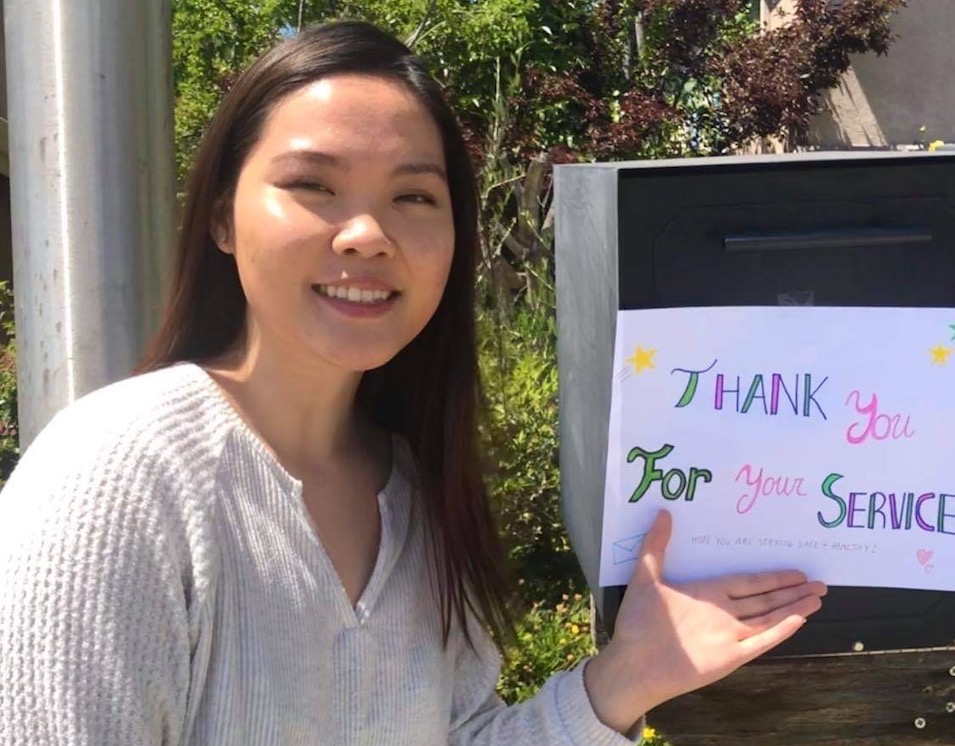 THANK You
For Your SERVICE
HOPE YOU ARE STAYING SAFE + HEALTHY!